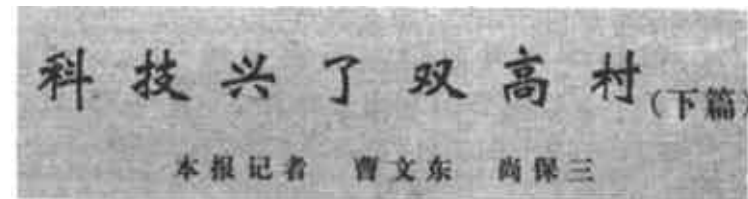 科技兴了双高村(下篇)
本报记者 曹文东 尚保三